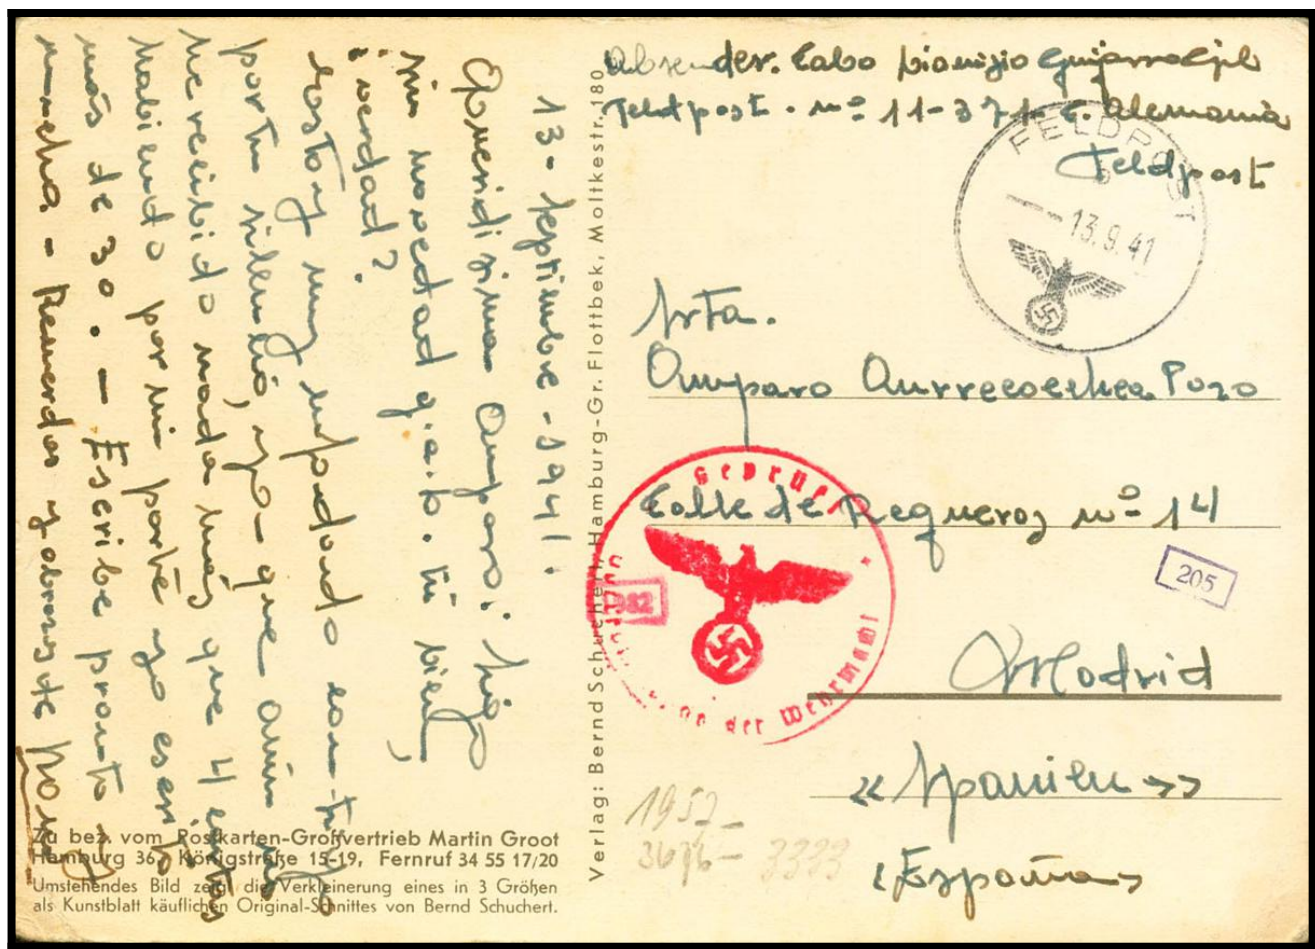 Absender. Cabo Dionizio Guijarro
Feldpost. nº 11-371-E. Alemania
Feldpost
FELDPOST
13.9.41
Srta.
Amparo Aurrecoechea Pozo
Calle de Regueros nº 14
205
Madrid
«Spanien»
«España»
Geprüft
der Wehrmacht
1957-
3676- 3333
Verlag: Bernd Schuchert, Hamburg-Gr. Flottbek, Moltkestr. 180
13-septiembre-1941.
Queridisima Amparo: Sigo
sin novedad g.a.D. tú bien,
¿verdad?
Estoy muy enfadado con-tigo
por tu silencio, ya-que aún no
he recibido nada más que 4 cartas
habiendo por mi parte yo escrito
más de 30. - Escribe pronto y
mucho - Recuerdos y abrazote
Zu bez. vom Postkarten-Großvertrieb Martin Groot
Hamburg 36, Königstraße 15-19, Fernruf 34 55 17/20
Umstehendes Bild zeigt die Verkleinerung eines in 3 Größen
als Kunstblatt käuflichen Original-Schnittes von Bernd Schuchert.